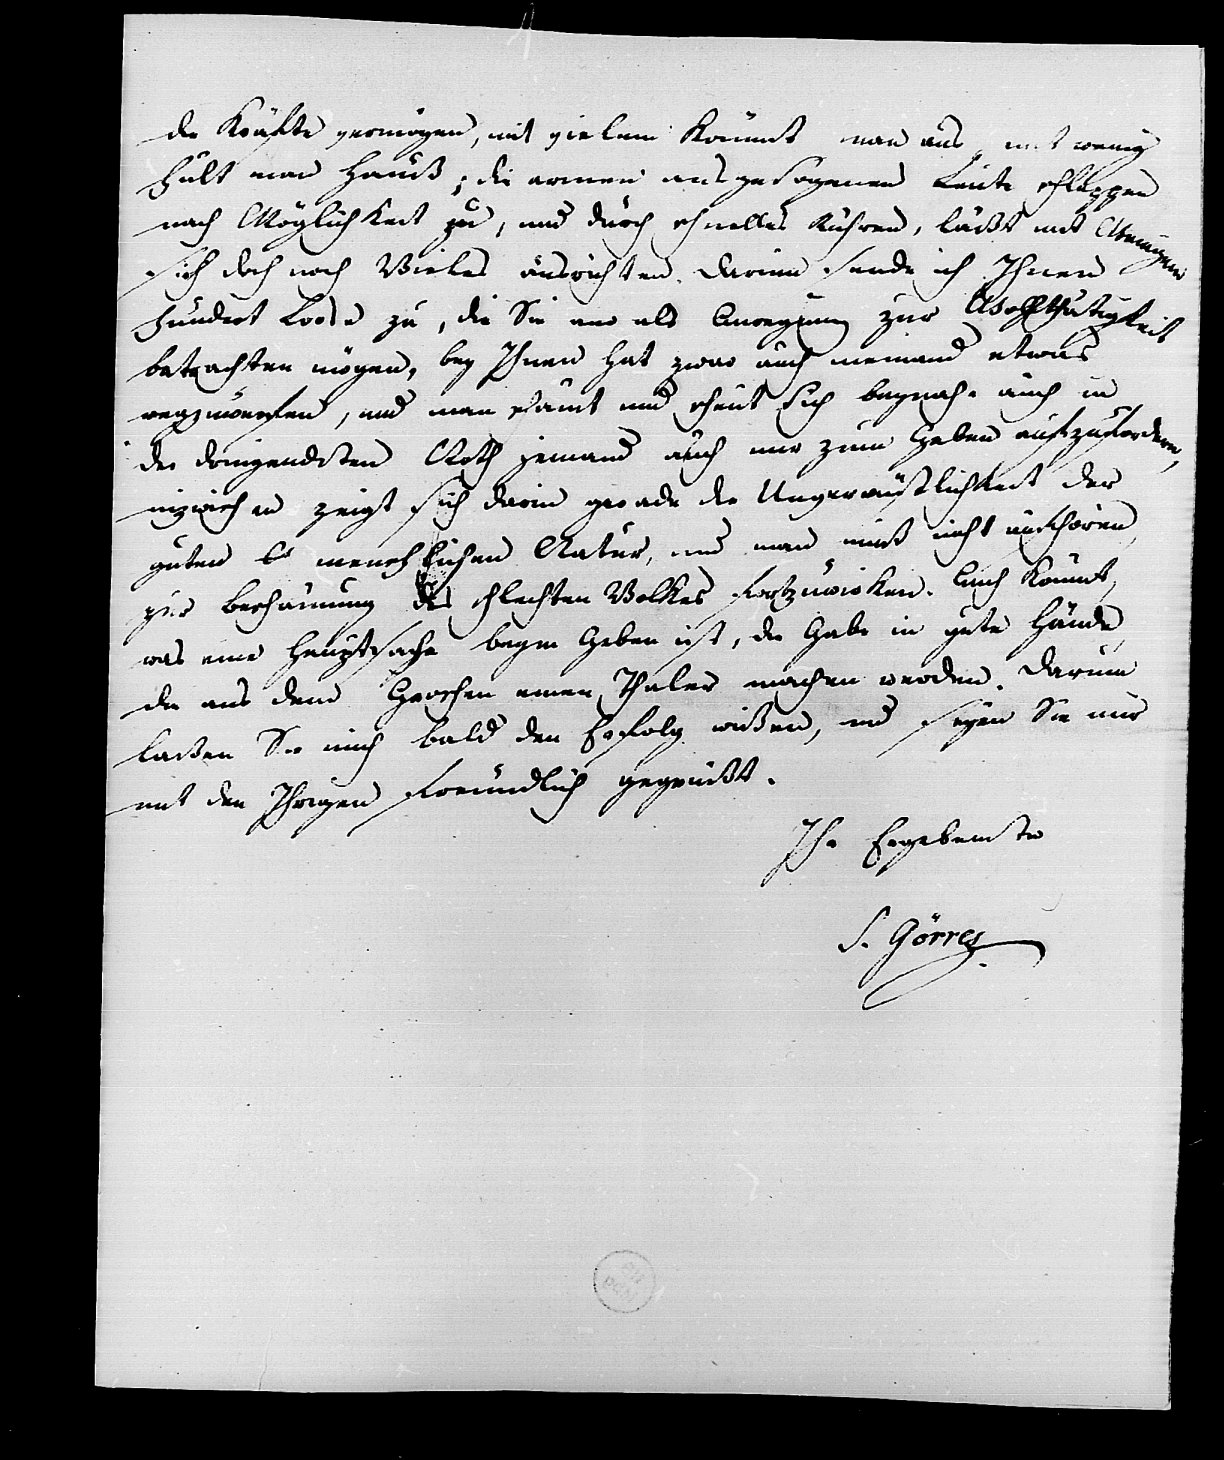 die Kräfte vermögen, mit vielem kömmt man aus, mit wenig
hält man Hauß; die armen ausgesogenen Leute schleppen
nach Möglichkeit zu, und durch schnelles Rühren, läßt mit Wenigem
sich doch noch Vieles ausrichten. Darum sende ich Ihnen
hundert Loose zu, die Sie nur als Anregung zur Wohlthätigkeit
betrachten mögen, bey Ihnen hat zwar auch niemand etwas
wegzuwerfen, und man schämt und scheut sich beynahe auch in
der dringendsten Noth jemand auch nur zum Geben aufzufordern,
inzwischen zeigt sich darin gerade die Unverwüstlichkeit der
guten menschlichen Natur, und man muß nicht aufhören,
zur Beschämung des schlechten Volkes fortzuwirken. Auch kömmt,
was eine Hauptsache beym Geben ist, die Gabe in gute Hände,
die aus dem Groschen einen Thaler machen werden. Darum
laßen Sie mich bald den Erfolg wißen, und seyen Sie mir
mit den Ihrigen freundlich gegrüßt.
Ihr Ergebenster
J. Görres